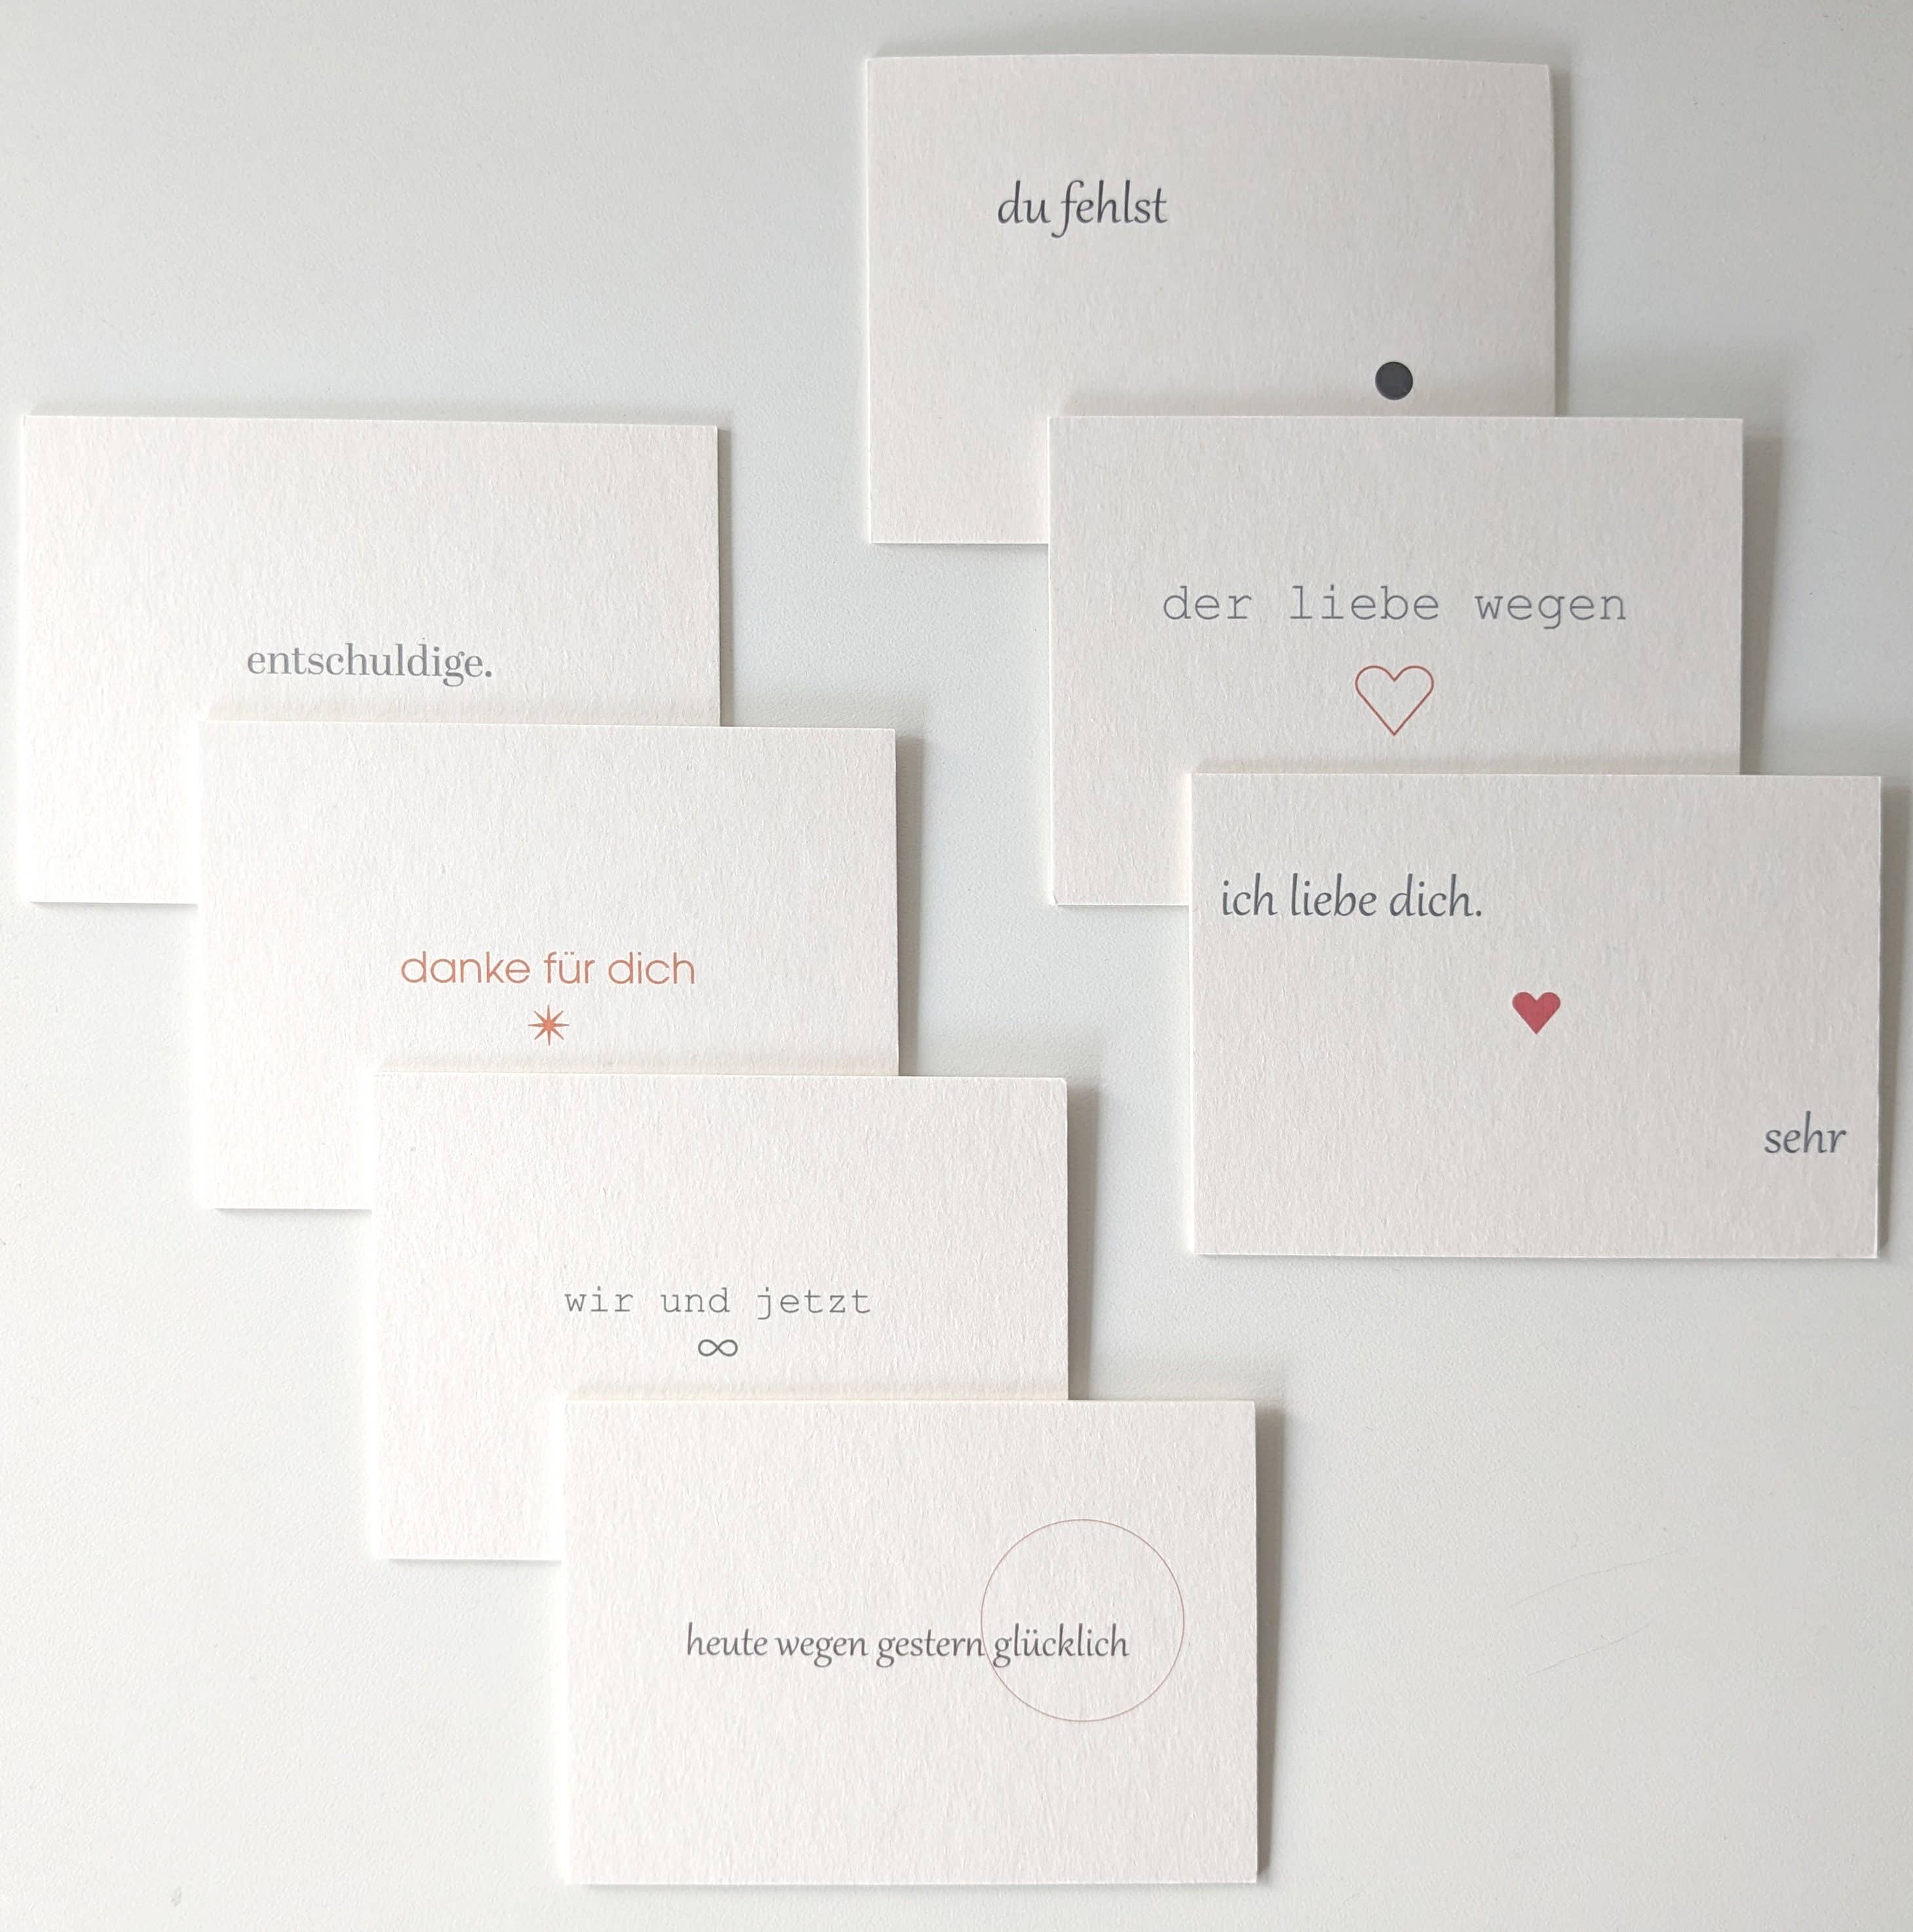 du fehlst
der liebe wegen
ich liebe dich.
sehr
entschuldige.
danke für dich
wir und jetzt
∞
heute wegen gestern glücklich